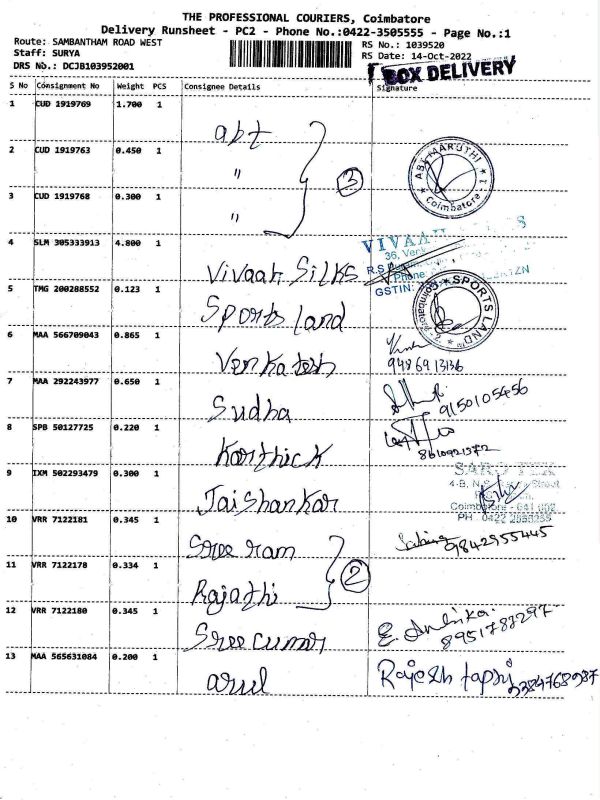 THE PROFESSIONAL COURIERS, Coimbatore
Delivery Runsheet - PC2 - Phone No.:0422-3505555 - Page No.:1
Route: SAMBANTHAM ROAD WEST
RS No.: 1039520
Staff: SURYA
RS Date: 14-Oct-2022
DRS No.: DCJB103952001
BOX DELIVERY
S No Consignment No Weight PCS Consignee Details Signature
1 CUD 1919769 1.700 1 abt
2 CUD 1919763 0.450 1 " 3
ABT MARUTHI
Coimbatore
3 CUD 1919768 0.300 1 "
4 SLM 305333913 4.800 1 Vivaah Silks
36,
GSTIN:
5 TMG 200288552 0.123 1 Sports land
SPORTS LAND
6 MAA 566709043 0.865 1 Venkatesh
9486913136
7 MAA 292243977 0.650 1 Sudha
9150105456
8 SPB 50127725 0.220 1 Karthick
8610921572
9 IXM 502293479 0.300 1 Jaishankar
SARO TEX
4-B,
Coimbatore - 641 002.
10 VRR 7122181 0.345 1 Sree ram
9842955445
11 VRR 7122178 0.334 1 Rajathi 2
12 VRR 7122180 0.345 1 Sreecumar
8951787297
13 MAA 565631084 0.200 1 arul
Rajesh